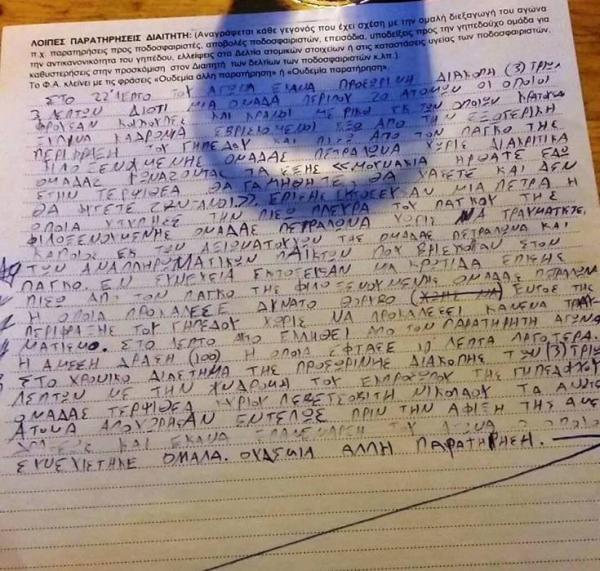 ΛΟΙΠΕΣ ΠΑΡΑΤΗΡΗΣΕΙΣ ΔΙΑΙΤΗΤΗ: (Αναγράφεται κάθε γεγονός που έχει σχέση με την ομαλή διεξαγωγή του αγώνα
π.χ. παρατηρήσεις προς ποδοσφαιριστές, αποβολές ποδοσφαιριστών, επεισόδια, υποδείξεις προς την γηπεδούχο ομάδα για
την αντικανονικότητα του γηπέδου, ελλείψεις στα Δελτία ατομικών στοιχείων ή στις καταστάσεις υγείας των ποδοσφαιριστών,
καθυστερήσεις στην προσκόμιση στον Διαιτητή των δελτίων των ποδοσφαιριστών κ.λπ.)
Το Φ.Α. κλείνει με τις φράσεις «Ουδεμία άλλη παρατήρηση» ή «Ουδεμία παρατήρηση».
ΣΤΟ 22' ΛΕΠΤΟ ΤΟΥ ΑΓΩΝΑ ΕΚΑΝΑ ΠΡΟΣΩΡΙΝΗ ΔΙΑΚΟΠΗ (3) ΤΡΙΩΝ
ΛΕΠΤΩΝ ΔΙΟΤΙ ΜΙΑ ΟΜΑΔΑ ΠΕΡΙΠΟΥ 20 ΑΤΟΜΩΝ ΟΙ ΟΠΟΙΟΙ
ΦΟΡΟΥΣΑΝ ΚΟΥΚΟΥΛΕΣ ΚΑΙ ΚΡΑΝΟΙ ΜΕΡΙΚΟΙ ΕΚ ΤΩΝ ΟΠΟΙΩΝ ΚΡΑΤΟΥΣΑΝ
ΞΥΛΙΝΑ ΚΑΔΡΟΝΙΑ ΕΥΡΙΣΚΟΜΕΝΟΙ ΕΞΩ ΑΠΟ ΤΗΝ ΕΞΩΤΕΡΙΚΗ
ΠΕΡΙΦΡΑΞΗ ΤΟΥ ΓΗΠΕΔΟΥ ΚΑΙ ΠΙΣΩ ΑΠΟ ΤΟΝ ΠΑΓΚΟ ΤΗΣ
ΦΙΛΟΞΕΝΟΥΜΕΝΗΣ ΟΜΑΔΑΣ ΠΕΤΡΑΛΩΝΑ ΧΩΡΙΣ ΔΙΑΚΡΙΤΙΚΑ
ΟΜΑΔΑΣ ΦΩΝΑΖΟΝΤΑΣ ΤΑ ΕΞΗΣ «ΜΟΥΝΑΚΙΑ ΗΡΘΑΤΕ ΕΔΩ
ΣΤΗΝ ΤΕΡΨΙΘΕΑ ΘΑ ΓΑΜΗΘΗΤΕ, ΘΑ ΧΑΣΕΤΕ ΚΑΙ ΔΕΝ
ΘΑ ΦΥΓΕΤΕ ΖΩΝΤΑΝΟΙ». ΕΠΙΣΗΣ ΕΚΤΟΞΕΥΣΑΝ ΜΙΑ ΠΕΤΡΑ Η
ΟΠΟΙΑ ΧΤΥΠΗΣΕ ΤΗΝ ΠΙΣΩ ΠΛΕΥΡΑ ΤΟΥ ΠΑΓΚΟΥ ΤΗΣ
ΦΙΛΟΞΕΝΟΥΜΕΝΗΣ ΟΜΑΔΑΣ ΠΕΤΡΑΛΩΝΑ ΧΩΡΙΣ ΝΑ ΤΡΑΥΜΑΤΙΣΤΕΙ
ΚΑΠΟΙΟΣ ΕΚ ΤΩΝ ΑΞΙΩΜΑΤΟΥΧΩΝ ΤΗΣ ΟΜΑΔΑΣ ΠΕΤΡΑΛΩΝΑ ΚΑΙ
ΤΩΝ ΑΝΑΠΛΗΡΩΜΑΤΙΚΩΝ ΠΑΙΚΤΩΝ ΠΟΥ ΒΡΙΣΚΟΤΑΝ ΣΤΟΝ
ΠΑΓΚΟ. ΕΝ ΣΥΝΕΧΕΙΑ ΕΚΤΟΞΕΥΣΑΝ ΜΙΑ ΚΡΟΤΙΔΑ ΕΠΙΣΗΣ
ΠΙΣΩ ΑΠΟ ΤΟΝ ΠΑΓΚΟ ΤΗΣ ΦΙΛΟΞΕΝΟΥΜΕΝΗΣ ΟΜΑΔΑΣ ΠΕΤΡΑΛΩΝΑ
Η ΟΠΟΙΑ ΠΡΟΚΑΛΕΣΕ ΔΥΝΑΤΟ ΘΟΡΥΒΟ ΕΝΤΟΣ ΤΗΣ
ΠΕΡΙΦΡΑΞΗΣ ΤΟΥ ΓΗΠΕΔΟΥ ΧΩΡΙΣ ΝΑ ΠΡΟΚΑΛΕΣΕΙ ΚΑΝΕΝΑ ΤΡΑΥ-
ΜΑΤΙΣΜΟ. ΣΤΟ ΛΕΠΤΟ ΑΠΟ ΤΟΝ ΠΑΡΑΤΗΡΗΤΗ ΑΓΩΝΑ
Η ΑΜΕΣΗ ΔΡΑΣΗ (100) Η ΟΠΟΙΑ ΕΦΤΑΣΕ 10 ΛΕΠΤΑ ΑΡΓΟΤΕΡΑ.
ΣΤΟ ΧΡΟΝΙΚΟ ΔΙΑΣΤΗΜΑ ΤΗΣ ΠΡΟΣΩΡΙΝΗΣ ΔΙΑΚΟΠΗΣ ΤΩΝ (3) ΤΡΙΩΝ
ΛΕΠΤΩΝ ΜΕ ΤΗΝ ΣΥΝΔΡΟΜΗ ΤΟΥ ΕΚΠΡΟΣΩΠΟΥ ΤΗΣ ΓΗΠΕΔΟΥΧΟΥ
ΟΜΑΔΑΣ ΤΕΡΨΙΘΕΑ ΚΥΡΙΟΥ ΝΙΚΟΛΑΟΥ ΤΑ
ΑΤΟΜΑ ΑΠΟΧΩΡΗΣΑΝ ΕΝΤΕΛΩΣ ΠΡΙΝ ΤΗΝ ΑΦΙΞΗ ΤΗΣ
ΚΑΙ ΕΚΑΝΑ ΤΟΥ ΑΓΩΝΑ Ο ΟΠΟΙΟΣ
ΣΥΝΕΧΙΣΤΗΚΕ ΟΜΑΛΑ. ΟΥΔΕΜΙΑ ΑΛΛΗ ΠΑΡΑΤΗΡΗΣΗ.